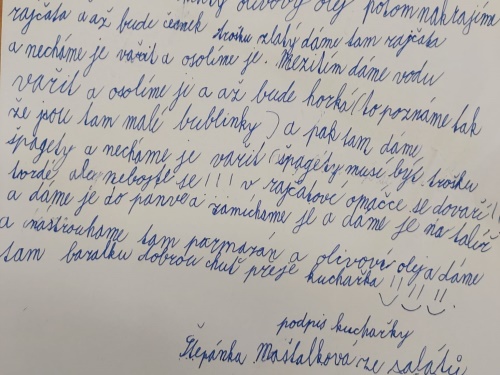 olivový olej potom nakrájím
rajčata a až bude česnek trošku zlatý dáme tam rajčata
a necháme je vařit a osolíme je. Mezitím dáme vodu
vařit a osolíme ji a až bude horká (to poznáme tak
že jsou tam malé bublinky) a pak tam dáme
špagety a necháme je vařit (špagety musí být trošku
tvrdé, ale nebojte se!!! v rajčatové omáčce se dovaří!!
a dáme je do panve a zamícháme je a dáme je na talíř
a nastrouháme tam parmazán a olivová oleja dáme
tam bazalku dobrou chuť přeje kuchařka !! !! !!
podpis kuchařky
Štěpánka Maštalková ze salátů